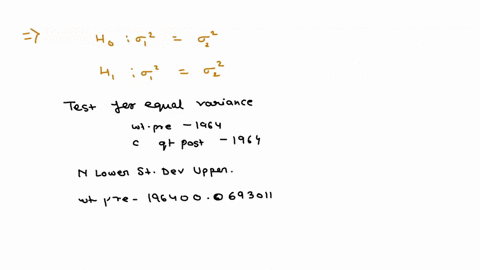 => H₀ : σ₁² = σ₂²
H₁ : σ₁² = σ₂²
Test yes equal variance
wt.pre - 1964
c qt post - 1964
N Lower St. Dev Upper.
wt pre - 196400.0693011